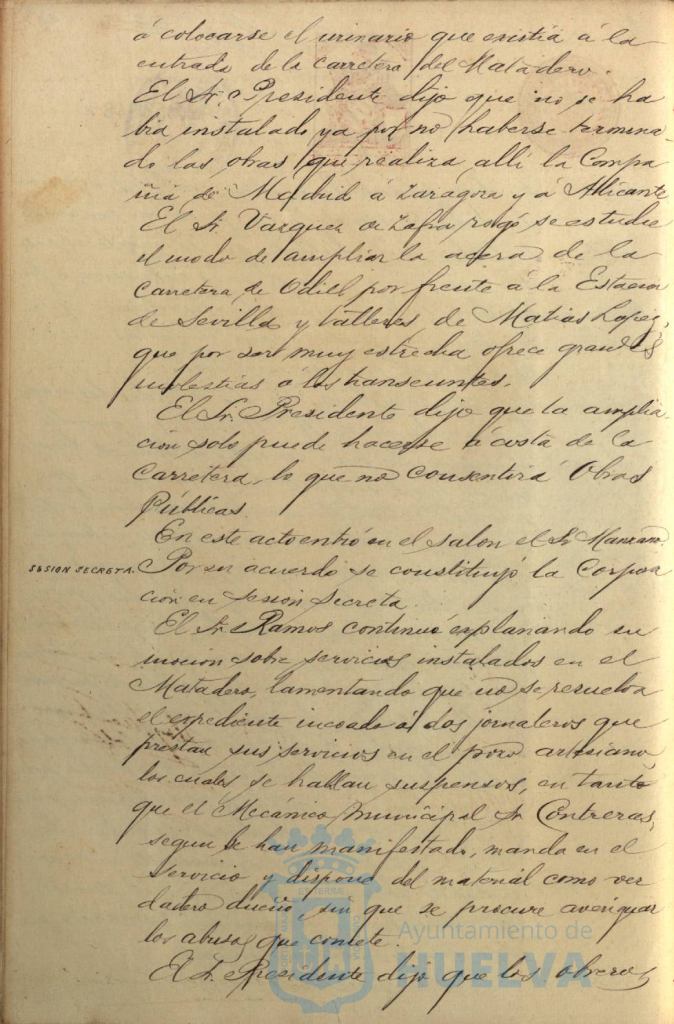 á colocarse el urinario que existiá á la
entrada de la carretera del Matadero.
El Sr. Presidente dijo que no se ha
bia instalado ya por no haberse termina
do las obras que realiza alli la Compa
ñia de Madrid á Zaragoza y á Allicante
El Sr. Vazquez de Zafra rogó se estudie
el modo de ampliar la acera de la
Carretera de Odiel por frente á la Estacion
de Sevilla y talleres de Matias Lopez,
que por ser muy estrecha ofrece grandes
molestias á los transeuntes.
El Sr. Presidente dijo que la amplia-
cion solo puede hacerse á costa de la
Carretera, lo que no consentirá Obras
Públicas.
En este acto entró en el salon el Sr Manzano.
SESION SECRETA. Por su acuerdo se constituyó la Corpora
cion en sesion secreta.
El Sr. Ramos continuó explanando su
mocion sobre servicios instalados en el
Matadero, lamentando que no se resuelva
el expediente incoado á dos jornaleros que
prestan sus servicios en el pozo artesiano,
los cuales se hallan suspensos, en tanto
que el Mecánico Municipal Sr Contreras,
segun le han manifestado, manda en el
servicio y dispone del material como ver
dadero dueño, sin que se procure averiguar
los abusos que comete.
El Sr. Presidente dijo que los obreros
Ayuntamiento de
HUELVA